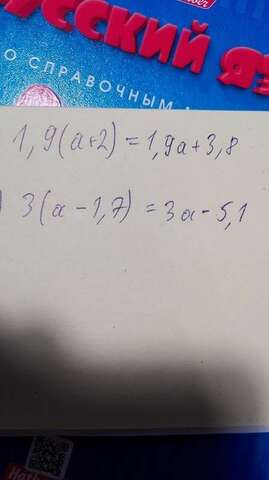 УССКИЙ ЯЗ
СПРАВОЧНЫМ
1,9(a+2)=1,9a+3,8
) 3(a-1,7)=3a-5,1